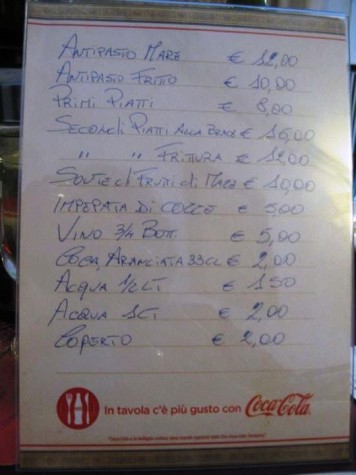 ANTIPASTO MARE € 12,00
ANTIPASTO FRITTO € 10,00
PRIMI PIATTI € 8,00
SECONDI PIATTI ALLA BRACE € 15,00
" " FRITTURA € 12,00
SOUTE di FRUTTI di MARE € 10,00
IMPEPATA DI COZZE € 5,00
VINO 3/4 BOTT. € 5,00
COCA, ARANCIATA 33CL € 2,00
ACQUA 1/2LT € 1,50
ACQUA 1LT € 2,00
COPERTO € 2,00
In tavola c'è più gusto con Coca-Cola.